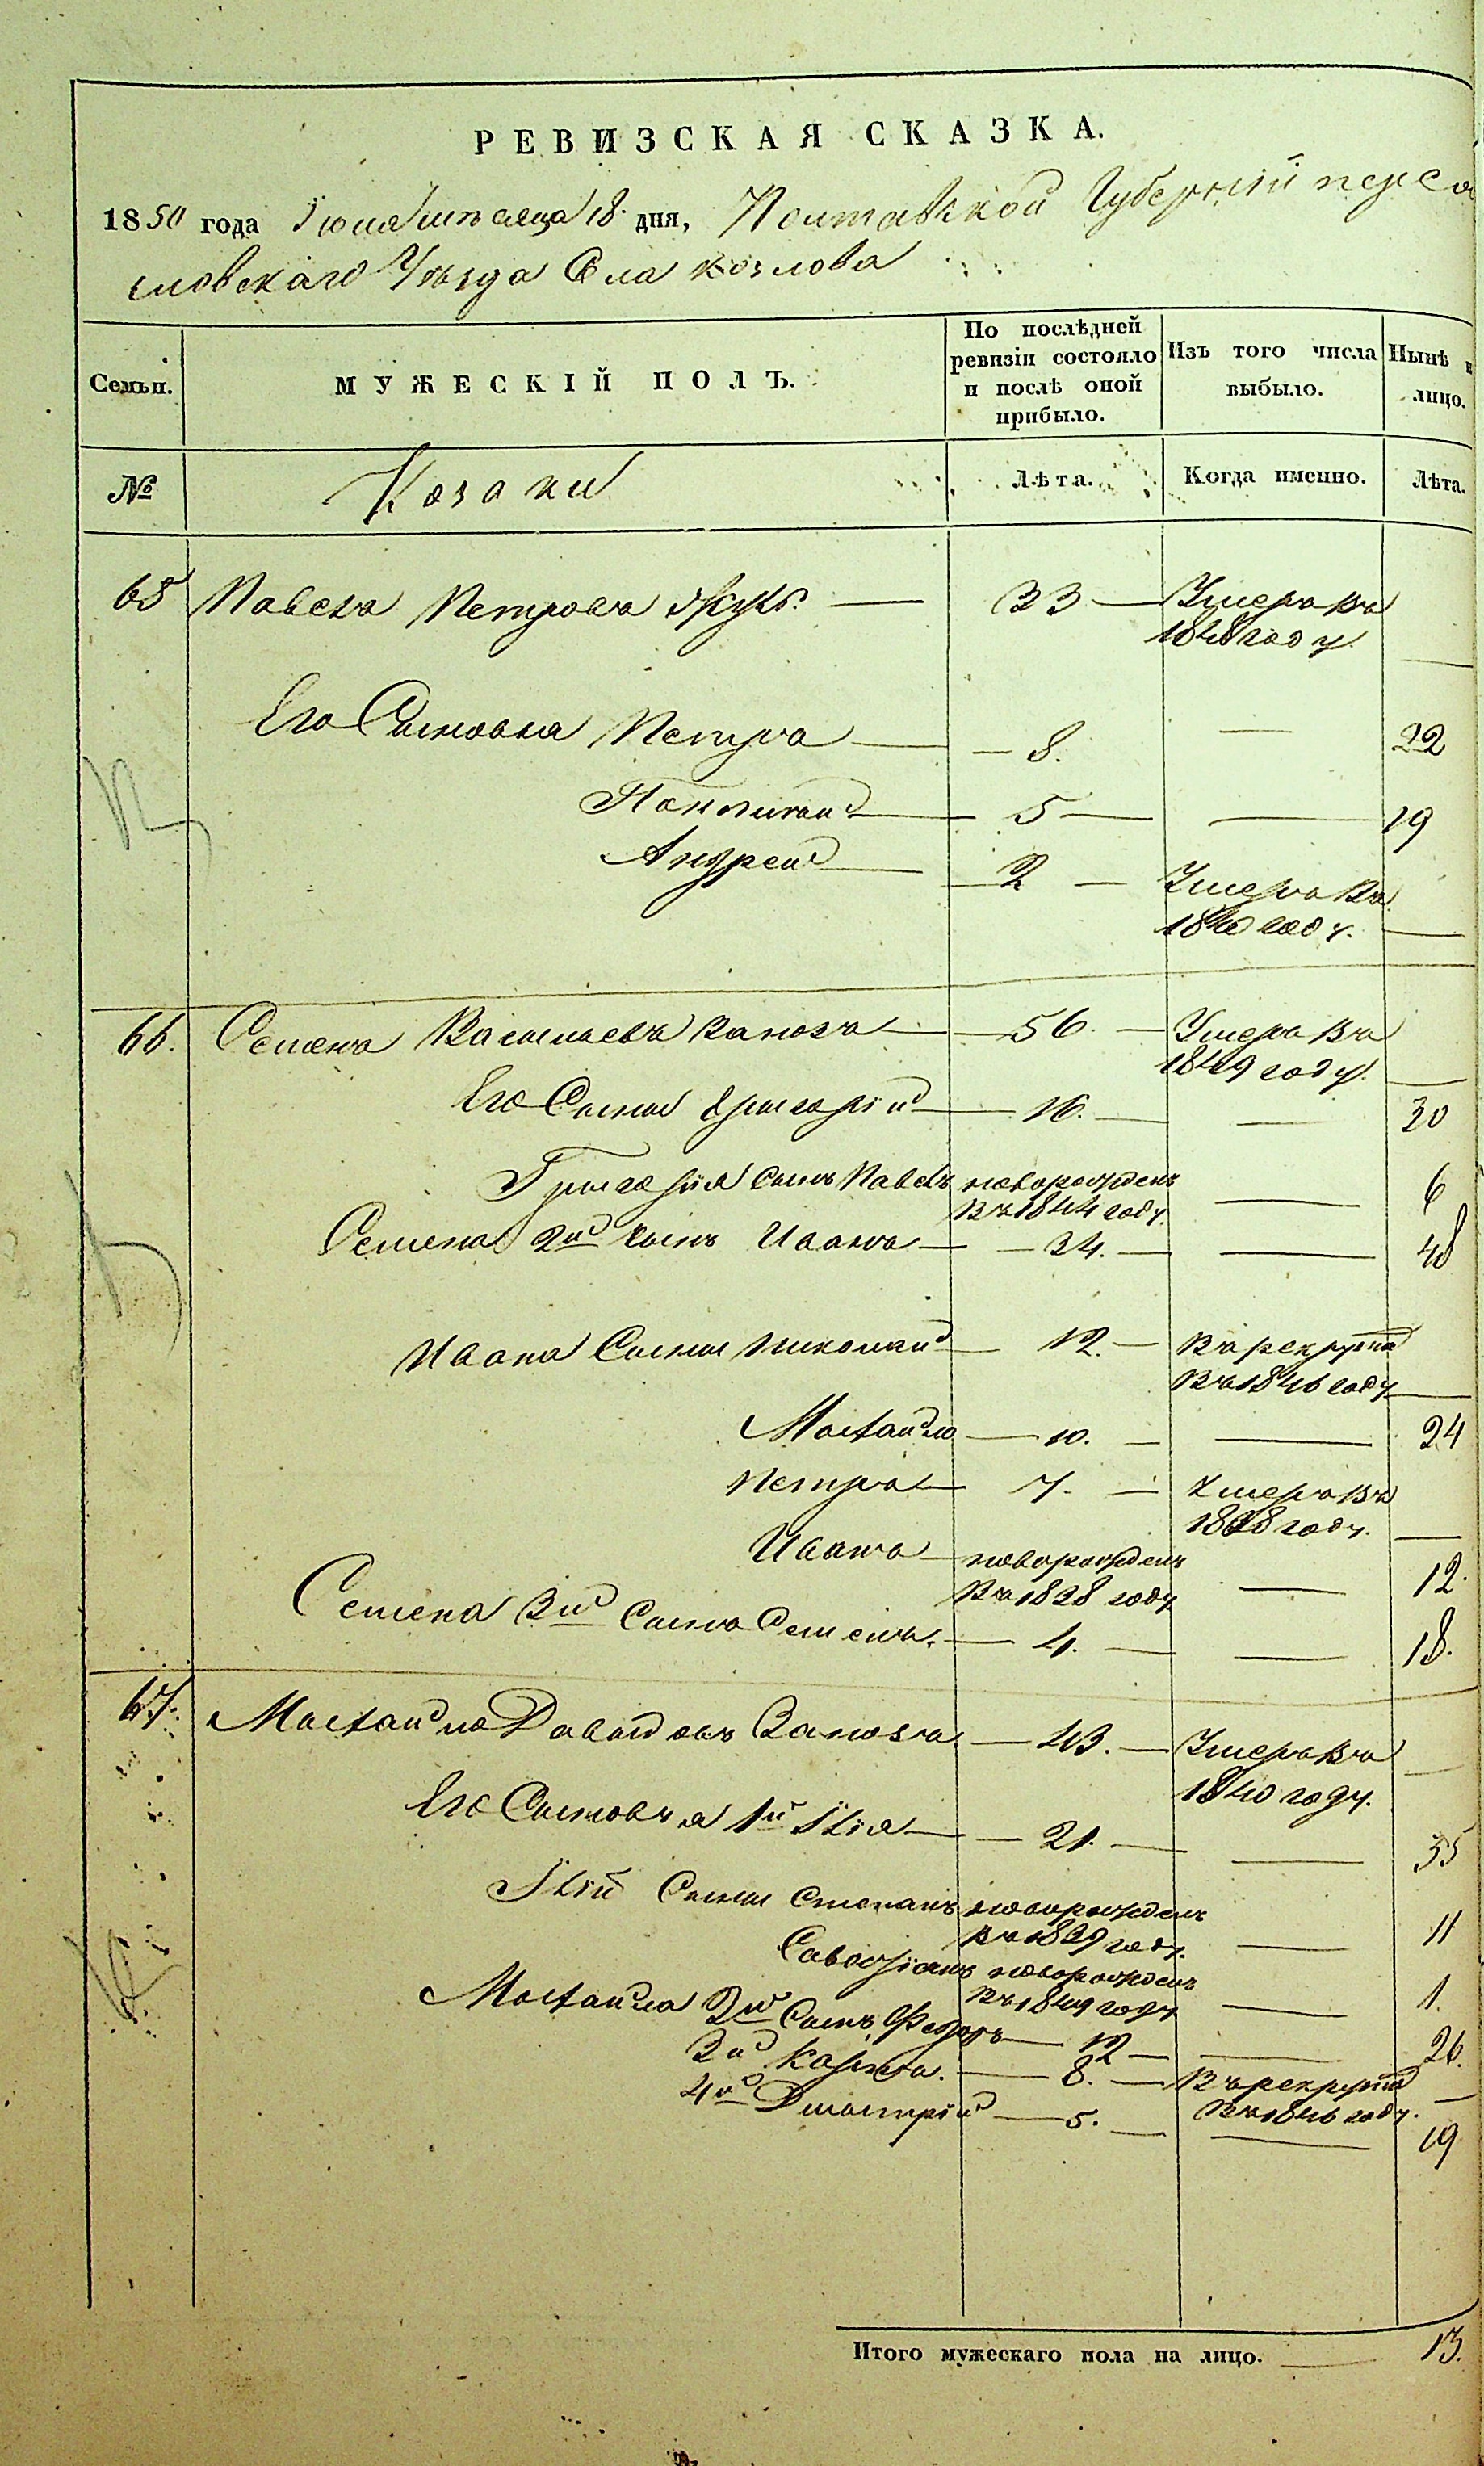 РЕВИЗСКАЯ СКАЗКА.
1850 года Іюня мѣсяца 18 дня, Полтавской Губерніи переся
словскаго Уѣзда Села Козлова
Семьи.
МУЖЕСКІЙ ПОЛЪ.
По послѣдней ревизіи состояло и послѣ оной прибыло.
Изъ того числа выбыло.
Нынѣ на лицо.
№
Козаки
Лѣта.
Когда именно.
Лѣта.
65 Павелъ Петровъ Жукъ. 33 Умеръ въ
1848 году
Его Сыновья Петръ 8. 22
Пантилей 5 19
Андрей 2 Умеръ въ
1840 году.
66. Семенъ Васильевъ 56. Умеръ въ
1849 году.
Его Сынъ Григорій 16. 30
Григорія сынъ Павелъ новорожденъ 6
въ 1844 году.
Семена 2й сынъ Иванъ 34. 48
Ивана Сыны Николай 12. въ рекруты
въ 1846 году
Михайло 10. 24
Петръ 7. Умеръ въ
1838 году.
Иванъ новорожденъ 12.
въ 1838 году
Семена 3й Сынъ Семенъ. 4. 18.
67. Михайло Давыдовъ 43. Умеръ въ
1840 году.
Его Сыновья 1й Илія 21. 35
Іліи Сыны Степанъ новорожденъ 11
въ 1839 году.
Савастіянъ новорожденъ 1.
въ 1849 году
Михайла 2й Сынъ Федоръ 12 26.
3й Карпъ. 8. въ рекруты
въ 1846 году.
4й Дмитрій 5. 19
Итого мужескаго пола на лицо. 13.